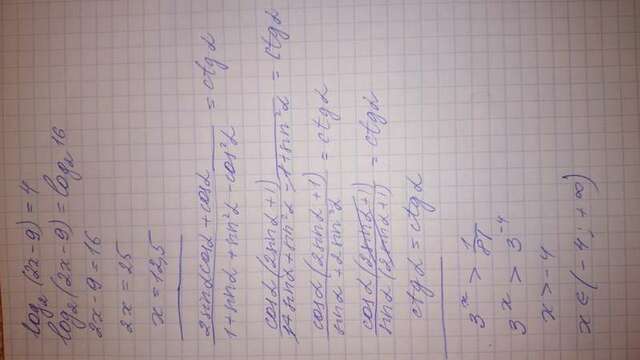 log₂(2x-9)=4
log₂(2x-9)=log₂16
2x-9=16
2x=25
x=12,5
(2sinα cosα + cosα)/(1+sinα+sin²α-cos²α) = ctgα
cosα(2sinα+1)/(1+sinα+sin²α-1+sin²α) = ctgα
cosα(2sinα+1)/(sinα+2sin²α) = ctgα
cosα(2sinα+1)/(sinα(2sinα+1)) = ctgα
ctgα = ctgα
3ˣ > 1/81
3ˣ > 3⁻⁴
x>-4
x∈(-4; +∞)